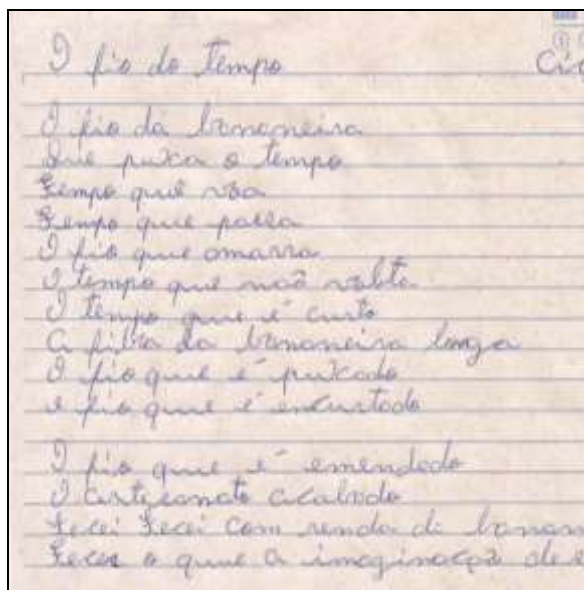 O fio do tempo Cic
O fio da bananeira
Que puxa o tempo
Tempo que voa
Tempo que passa
O fio que amarra
O tempo que não volta
O tempo que é curto
A fibra da bananeira longa
O fio que é puxado
O fio que é encurtado
O fio que é emendado
O artesanato acabado
Tecei Tecei com renda de banan
Tecer o que a imaginaçã de